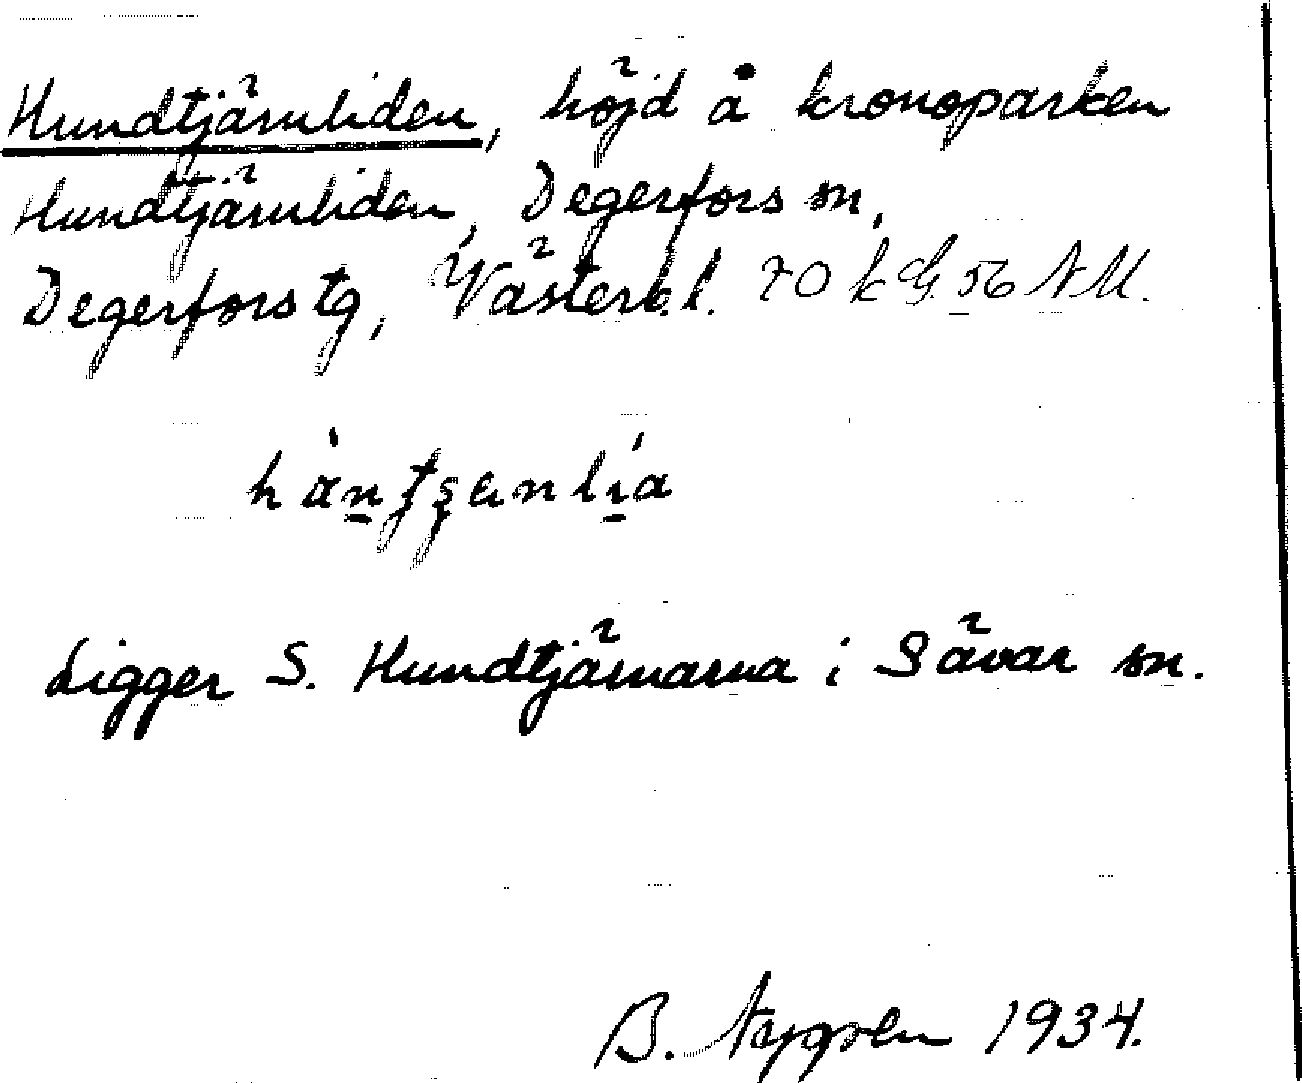 Hundtjärnliden, höjd å kronoparken
Hundtjärnliden, Degerfors sn,
Degerfors tg, Västerb.l. 70 k G. 56 NM.
Ligger S. Hundtjärnarna i Sävar sn.
B. Nygren 1934.